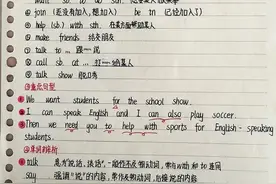 ② join (还是没有加入,想加入) be in (已经加入了)
③ help (sb.) with sth. 在某方面帮助某人
④ make friends 结交朋友
⑤ talk to ... 跟…说
⑥ call sb. at ... 打…给某人
⑦ talk show 脱口秀
We want students for the school show.
I can speak English and I can also play soccer.
Then we need you to help with sports for English-speaking students.
talk 意为"说话,谈话",一般情况不及物动词,常与with和to连用
say 强调"说"的内容,常作及物动词,后接说的内容